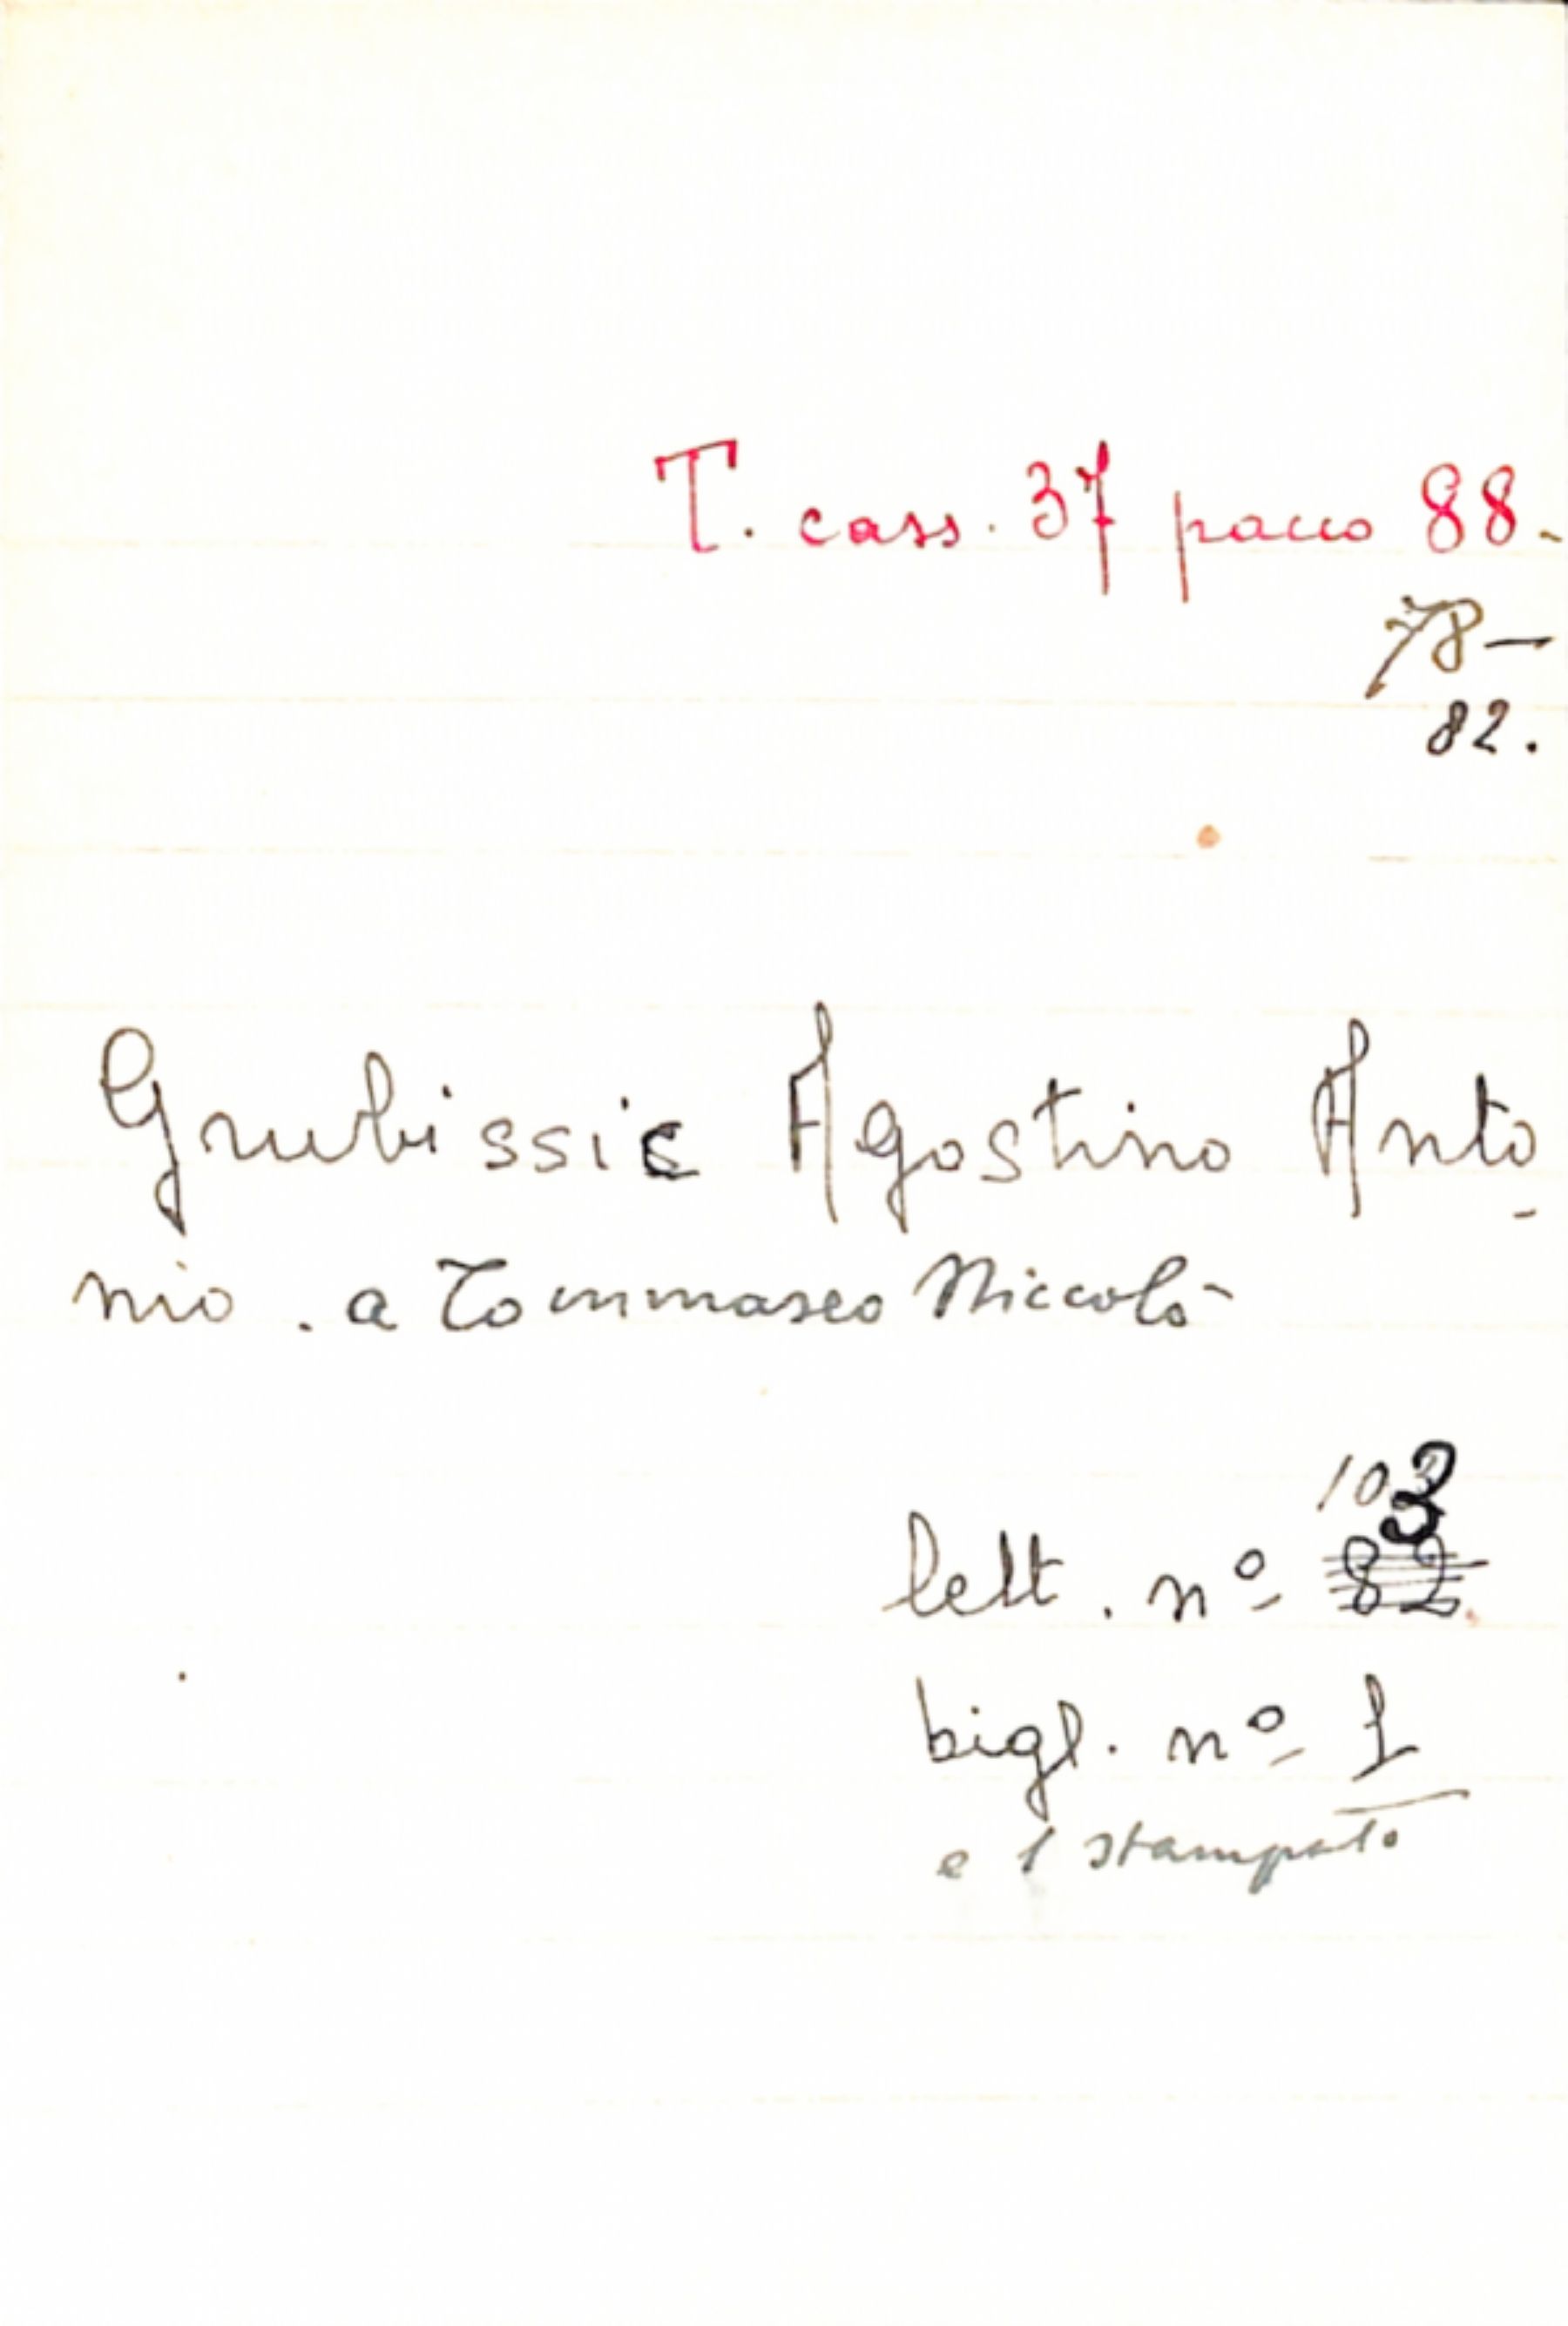 T. cass. 37 pacco 88.
78-
82.
Grubissic Agostino Anto-
nio. a Tommaseo Niccolò
103
lett. nº 82
bigl. nº 1
e 1 stampato